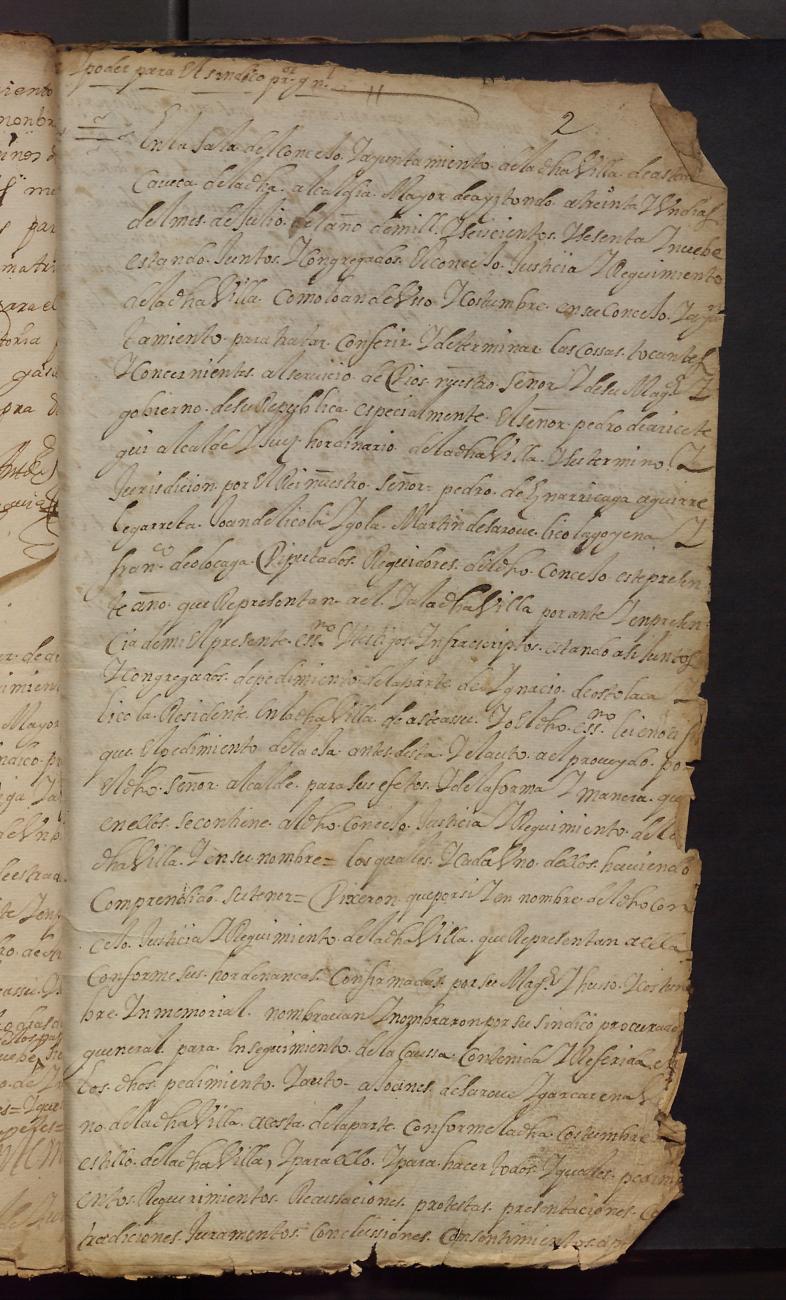 Y poder para El sindico pr.or gn.l
2
En la Sala del Conceso Yayuntamiento de la dha Villa de astea
Caveça de la dha alcaldia Mayor de aytondo a treinta Y Un dias
del mes de Julio del año de mill Y seiscientos Y sesenta Y nuebe
estando Juntos Y Congregados El conceso Justicia Y Reguimiento
de la dha Villa como lo an de Vso Y Costumbre en su Conceso Yayu
tamiento para tratar Conferir Y determinar las Cossas tocantes
Y Concernientes al serviçio de Dios nuestro Señor Y de su Mag.d Y
gobierno de su Republica especialmente El señor pedro de aricete
gui alcalde Y Juez hordinario de la dha Villa Y su termino Y
Jurisdicion por El Rei nuestro Señor = pedro de Ynarricaga aguirre
legarreta Joan de licola Ygola Martin de Saroue licolagoyena Y
fran.co de olocaga Diputados Reguidores del dho Conceso este presen
te año que Representan a el Y a la dha Villa por ante Y en presen
cia de mi El presente ess.no Y testigos Infraescriptos estando asi Juntos
Y Congregados de pedimiento de la parte de Ygnacio de ostolaca
licola Residente En la dha Villa de asteassu Yo El dho ess.no lei e notifi
que El pedimiento de la oja antes desta Y el auto a el proueydo por
El dho Señor alcalde para sus efetos Y de la forma Y manera que
en ellos se contiene al dho Conceso Justicia Y Reguimiento de la
dha Villa Y en su nombre = los quales Y Cada Vno dellos haviendo
Comprendido su tenor = Dixeron que por si Y en nombre del dho Con
ceso Justicia Y Reguimiento de la dha Villa que Representan a ella
Conforme sus hordenancas Confirmadas por su Mag.d Y husso Y costum
bre Inmemorial nombrauan Y nombraron por su sindico procurador
gueneral para En seguimiento de la Caussa Contenida Y Referida en
los dhos pedimiento Y auto = a Jocines de Saroue Ygarcarena Ve
no de la dha Villa a costa de la parte Conforme la dha Costumbre
estillo de la dha Villa, Y para ello Y para hacer todos Y quales pedimi
entos Requirimientos Recussaciones protestas presentaciones Co
tradiciones Juramentos Conclussiones Consentimientos ap